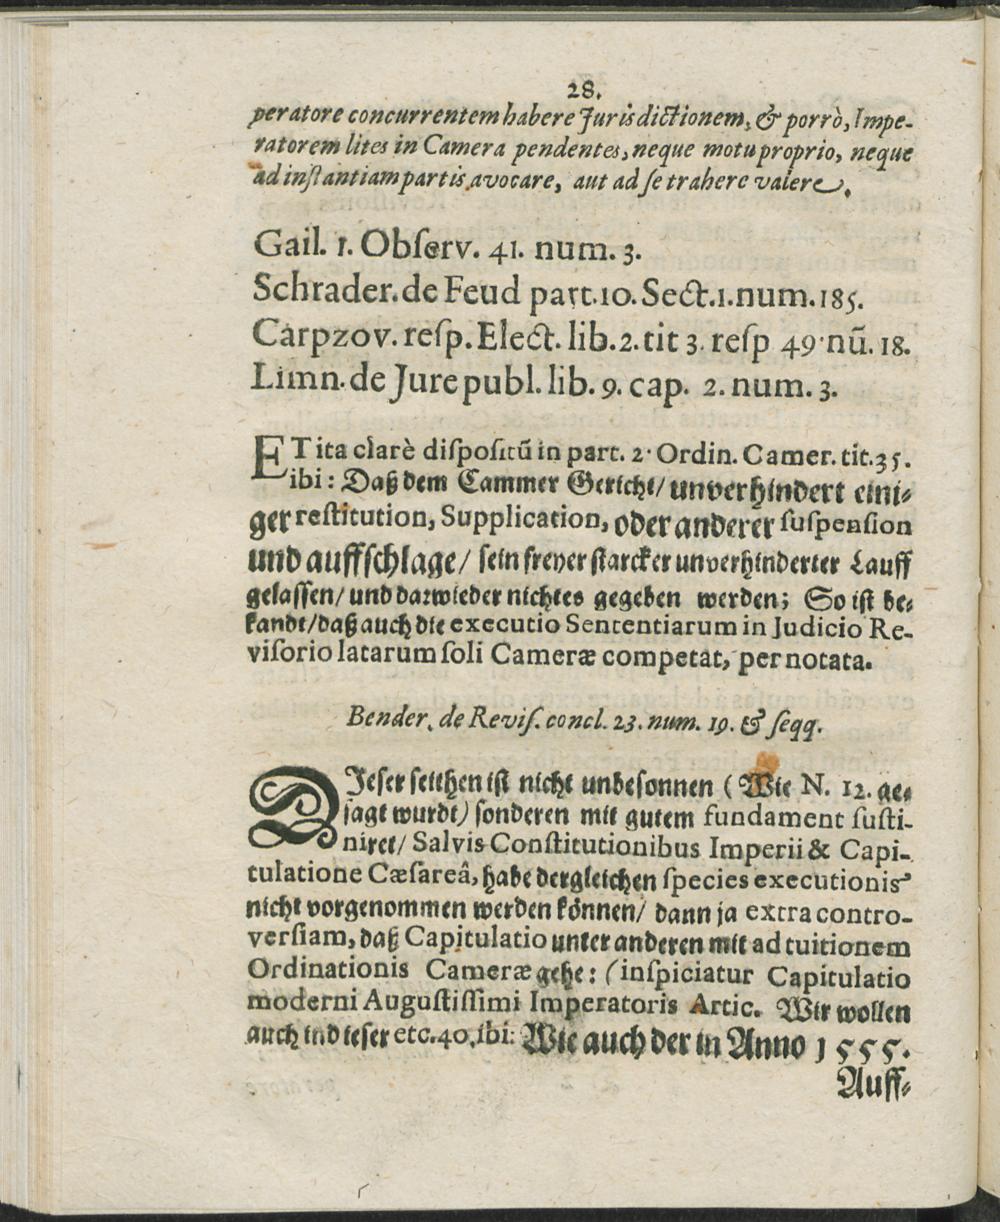 28.
peratore concurrentem habere Jurisdictionem, & porrò, Impe-
ratorem lites in Camera pendentes, neque motu proprio, neque
ad instantiam partis avocare, aut ad se trahere valere.
Gail. 1. Obſerv. 41. num. 3.
Schrader. de Feud part. 10. Sect. 1. num. 185.
Carpzov. reſp. Elect. lib. 2. tit 3. reſp 49. nũ. 18.
Limn. de Jure publ. lib. 9. cap. 2. num. 3.
ET ita clarè diſpoſitũ in part. 2. Ordin. Camer. tit. 35.
ibi: Daß dem Cammer Gericht/ unverhindert eini-
ger reſtitution, Supplication, oder anderer ſuſpenſion
und auffſchlage/ ſein freyer ſtarcker unverhinderter Lauff
gelaſſen/ und darwieder nichtes gegeben werden; So iſt be-
kandt/ daß auch die executio Sententiarum in Judicio Re-
viſorio latarum ſoli Cameræ competat, per notata.
Bender. de Reviſ. concl. 23. num. 19. & ſeqq.
DIeſer ſeithen iſt nicht unbeſonnen (Wie N. 12. ge-
ſagt wurdt) ſonderen mit gutem fundament ſuſti-
niret/ Salvis Conſtitutionibus Imperii & Capi-
tulatione Cæſareâ, habe dergleichen ſpecies executionis
nicht vorgenommen werden können/ dann ja extra contro-
verſiam, daß Capitulatio unter anderen mit ad tuitionem
Ordinationis Cameræ gehe: (inſpiciatur Capitulatio
moderni Auguſtiſſimi Imperatoris Artic. Wir wollen
auch in dieſer etc. 40. ibi: Wie auch der in Anno 1555.
Auff-